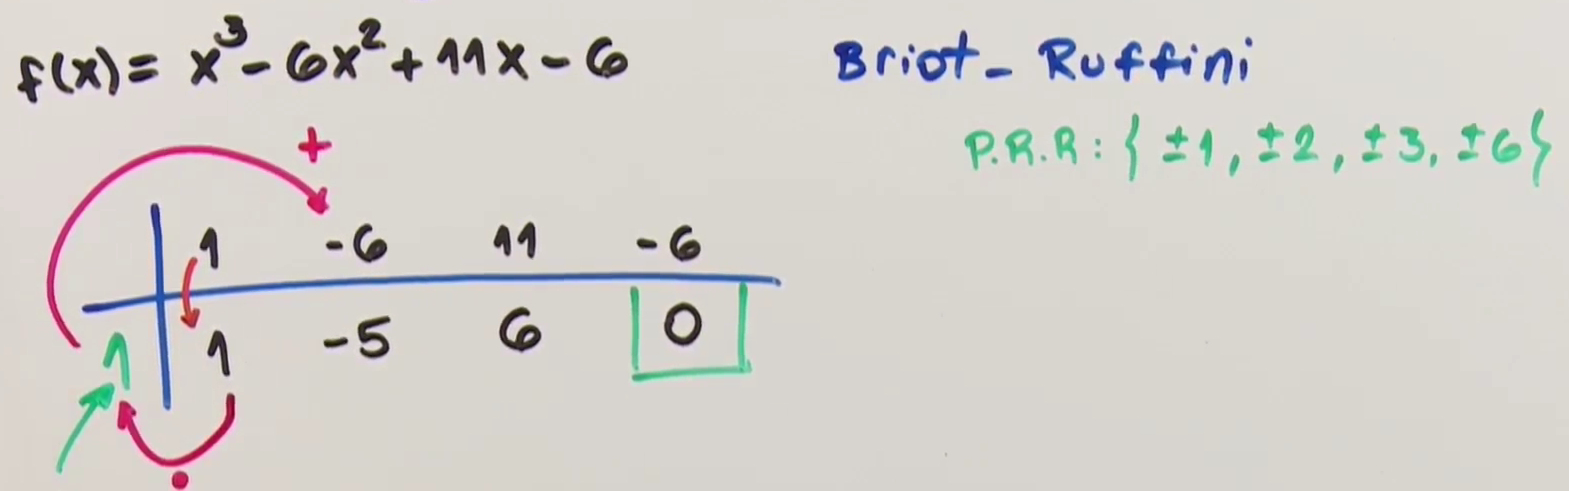 f(x) = x³ - 6x² + 11x - 6
Briot - Ruffini
P.R.R: { ±1, ±2, ±3, ±6}
+
1 -6 11 -6
1 1 -5 6 0
•